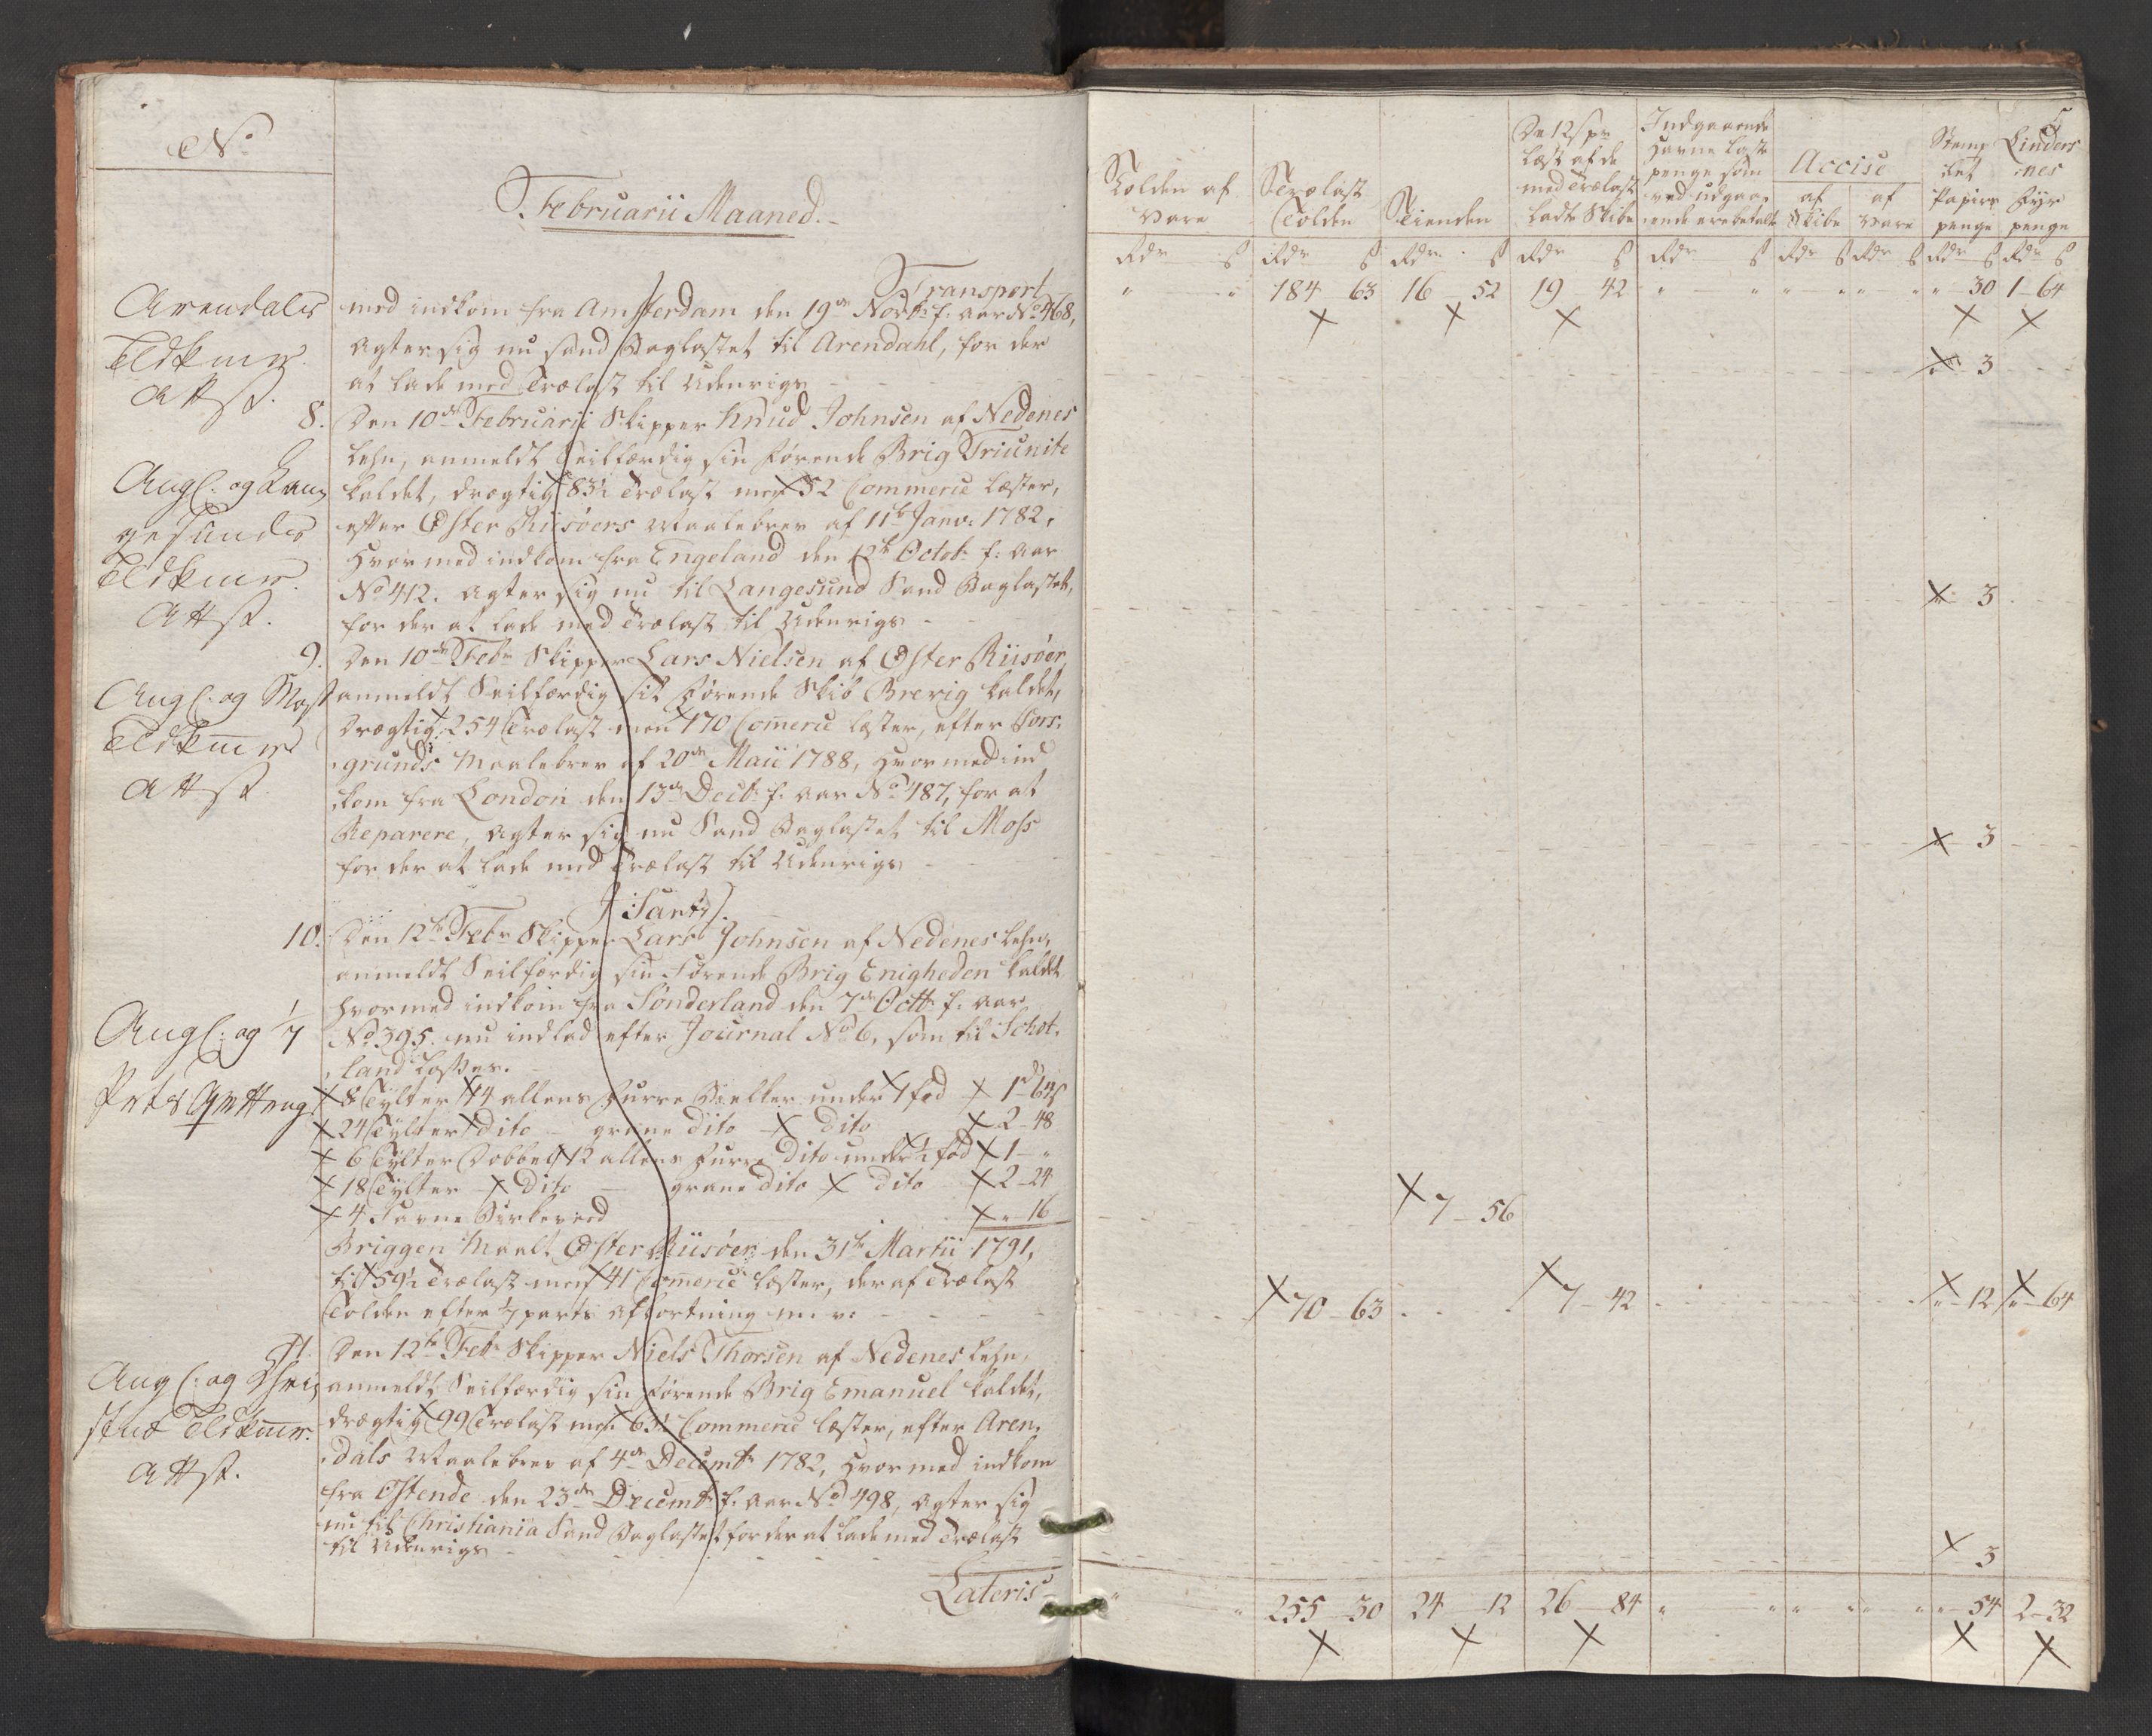 No
Februarii Maaned.
Transport
Arendals
Toldkmr
Attst.
med indkom fra Amsterdam den 19de Novbr f: aar No 468,
agter sig nu sand Baglastet til Arendahl, for der
at lade med Trælast til Udenrigs
8. Den 10de Februarii Skipper Knud Johnsen af Nedenes
Lehn, anmeldt Seilfærdig sin førende Brig Triunite
Ang: og Lan,
gesunds
Toldkmr.
Attst.
kaldet, drægtig 83½ Trælast men 52 Commerce Læster,
efter Øster Riisøers Maalebrev af 11te Janv: 1782,
Hvormed indkom fra Engeland den 12te Octob: f: aar
No 412. agter sig nu til Langesund Sand Baglastet,
for der at lade med Trælast til Udenrigs
9. Den 10de Febr Skipper Lars Nielsen af Øster Riisøer
Ang: og Moss
Toldkmr
Attst.
anmeldt Seilfærdig sit førende Skib Brerig kaldet,
drægtig 254 Trælast men 170 Comerce Læster, efter Pors,
grunds Maalebrev af 20de Maii 1788, Hvormed ind
kom fra London den 13de Decbr f: aar No 487, for at
Reparere, agter sig nu Sand Baglastet til Moss
for der at lade med Trælast til Udenrigs
10. Den 12te Febr Skipper Lars Johnsen af Nedenes Lehn,
anmeldt Seilfærdig sin førende Brig Enigheden kaldt
Hvormed indkom fra Sønderland den 7de Octbr f: aar
Ang: og 1/7
Parts
No 395. nu indlad efter Journal No 6, som til Schot,
land Losses.
8 Tylter 14 allens Furre Bielker under 1 fod 1 rd 64 s
24 Tylter dito - grane dito dito 2 - 48
6 Tylter Dobbelt 12 allens Furre dito under ½ fod 1 - "
18 Tylter dito - grane dito dito 2 - 24
4 Favne Birkeved " - 16
Briggen Maalt Øster Riisøer den 31te Martii 1791,
til 59½ Trælast men 41 Comerce Læster, der af Trælast
Tolden efter 1/7 parts afkortning m. v:
11. Den 12te Febr Skipper Niels Thorsen af Nedenes Lehn,
Ang: og Chri,
Toldkmr.
Attst.
anmeldt Seilfærdig sin førende Brig Emanuel kaldet,
drægtig 99 Trælast men 63½ Commerce Læster, efter Aren,
dals Maalebrev af 4de Decembr 1782, Hvormed indkom
fra Ostende den 23de Decembr f: aar No 498, agter sig
nu til Christiania Sand Baglastet for der at lade med Trælast
til Udenrigs
Lateris
5
Tolden af Vare
Trælast Tolden
Tienden
De 12 s pr Læst af de med Trælast ladte Skibe
Indgaaende Havne Laste penge som ved udgaaende ere betalte
Accise
af Skibe
af Vare
Stemplet Papirs penge
Lindersnes Fyr penge
Rdr s Rdr s Rdr s Rdr s Rdr s Rdr s Rdr s Rdr s Rdr s
" " 184 - 63 16 - 52 19 - 42 " " " " " " " - 30 1 - 64
" 3
" 3
" 3
7 - 56
70 - 63 7 - 42 " - 12 " - 64
3
" " 255 - 30 24 - 12 26 - 84 " " " " " " " - 54 2 - 32